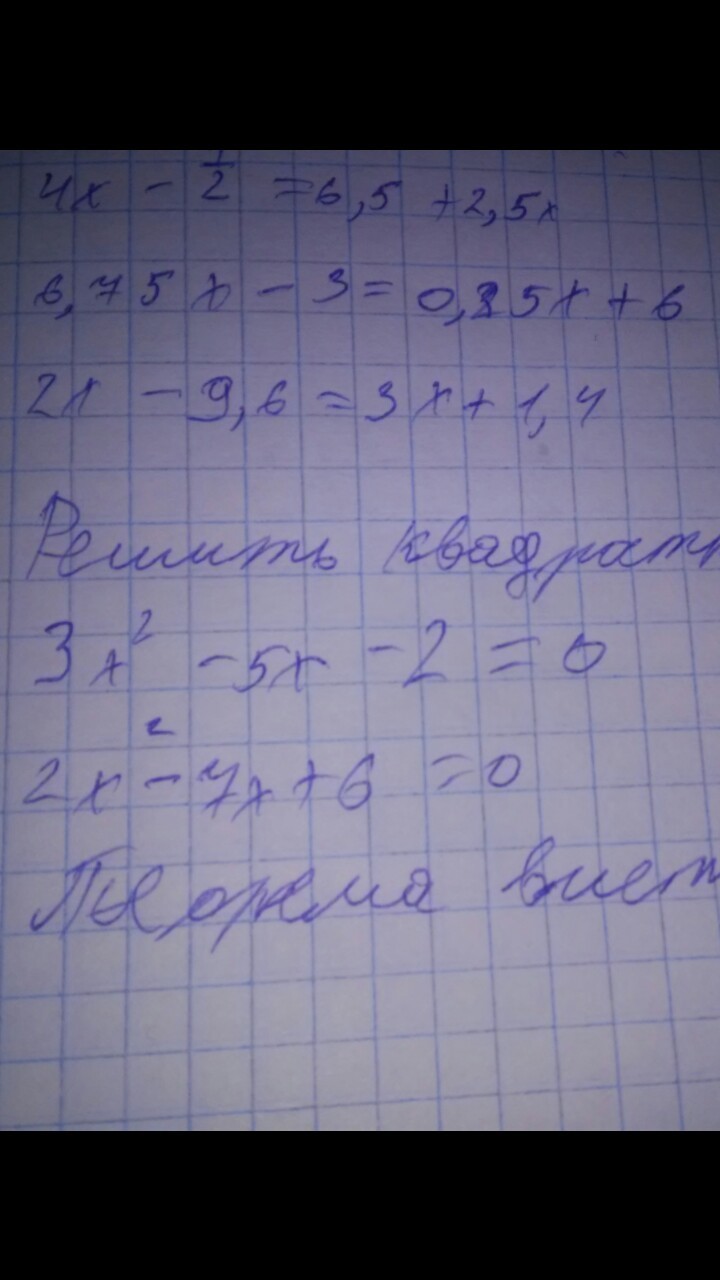 4x - 1/2 = 6,5 + 2,5x
6,75x - 3 = 0,25x + 6
2x - 9,6 = 3x + 1,4
Решить квадратн
3x² - 5x - 2 = 0
2x² - 7x + 6 = 0
Теорема виет